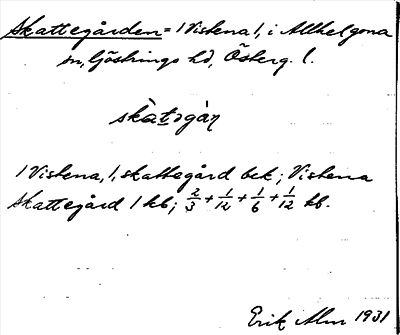 Skattegården = 1 Vistena 1, i Allhelgona
sn, Göstrings hd, Österg. l.
skàt̲əgàṇ
1 Vistena, 1, skattegård bek; Vistena
Skattegård 1 kb; 2/3 + 1/12 + 1/6 + 1/12 kb.
Erik Alm 1931